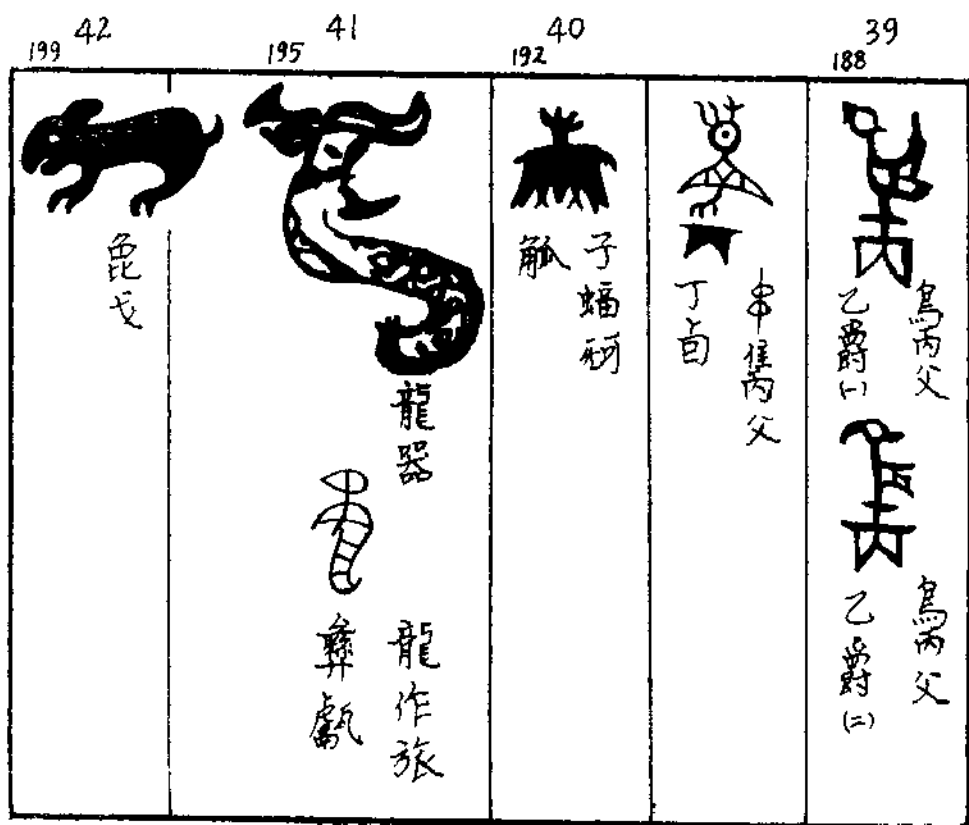 39
188
鳥丙父
乙爵(一)
鳥丙父
乙爵(二)
串丙父
丁卣
40
192
子蝠
觚
41
195
龍器
龍作旅
彝甗
42
199
戈